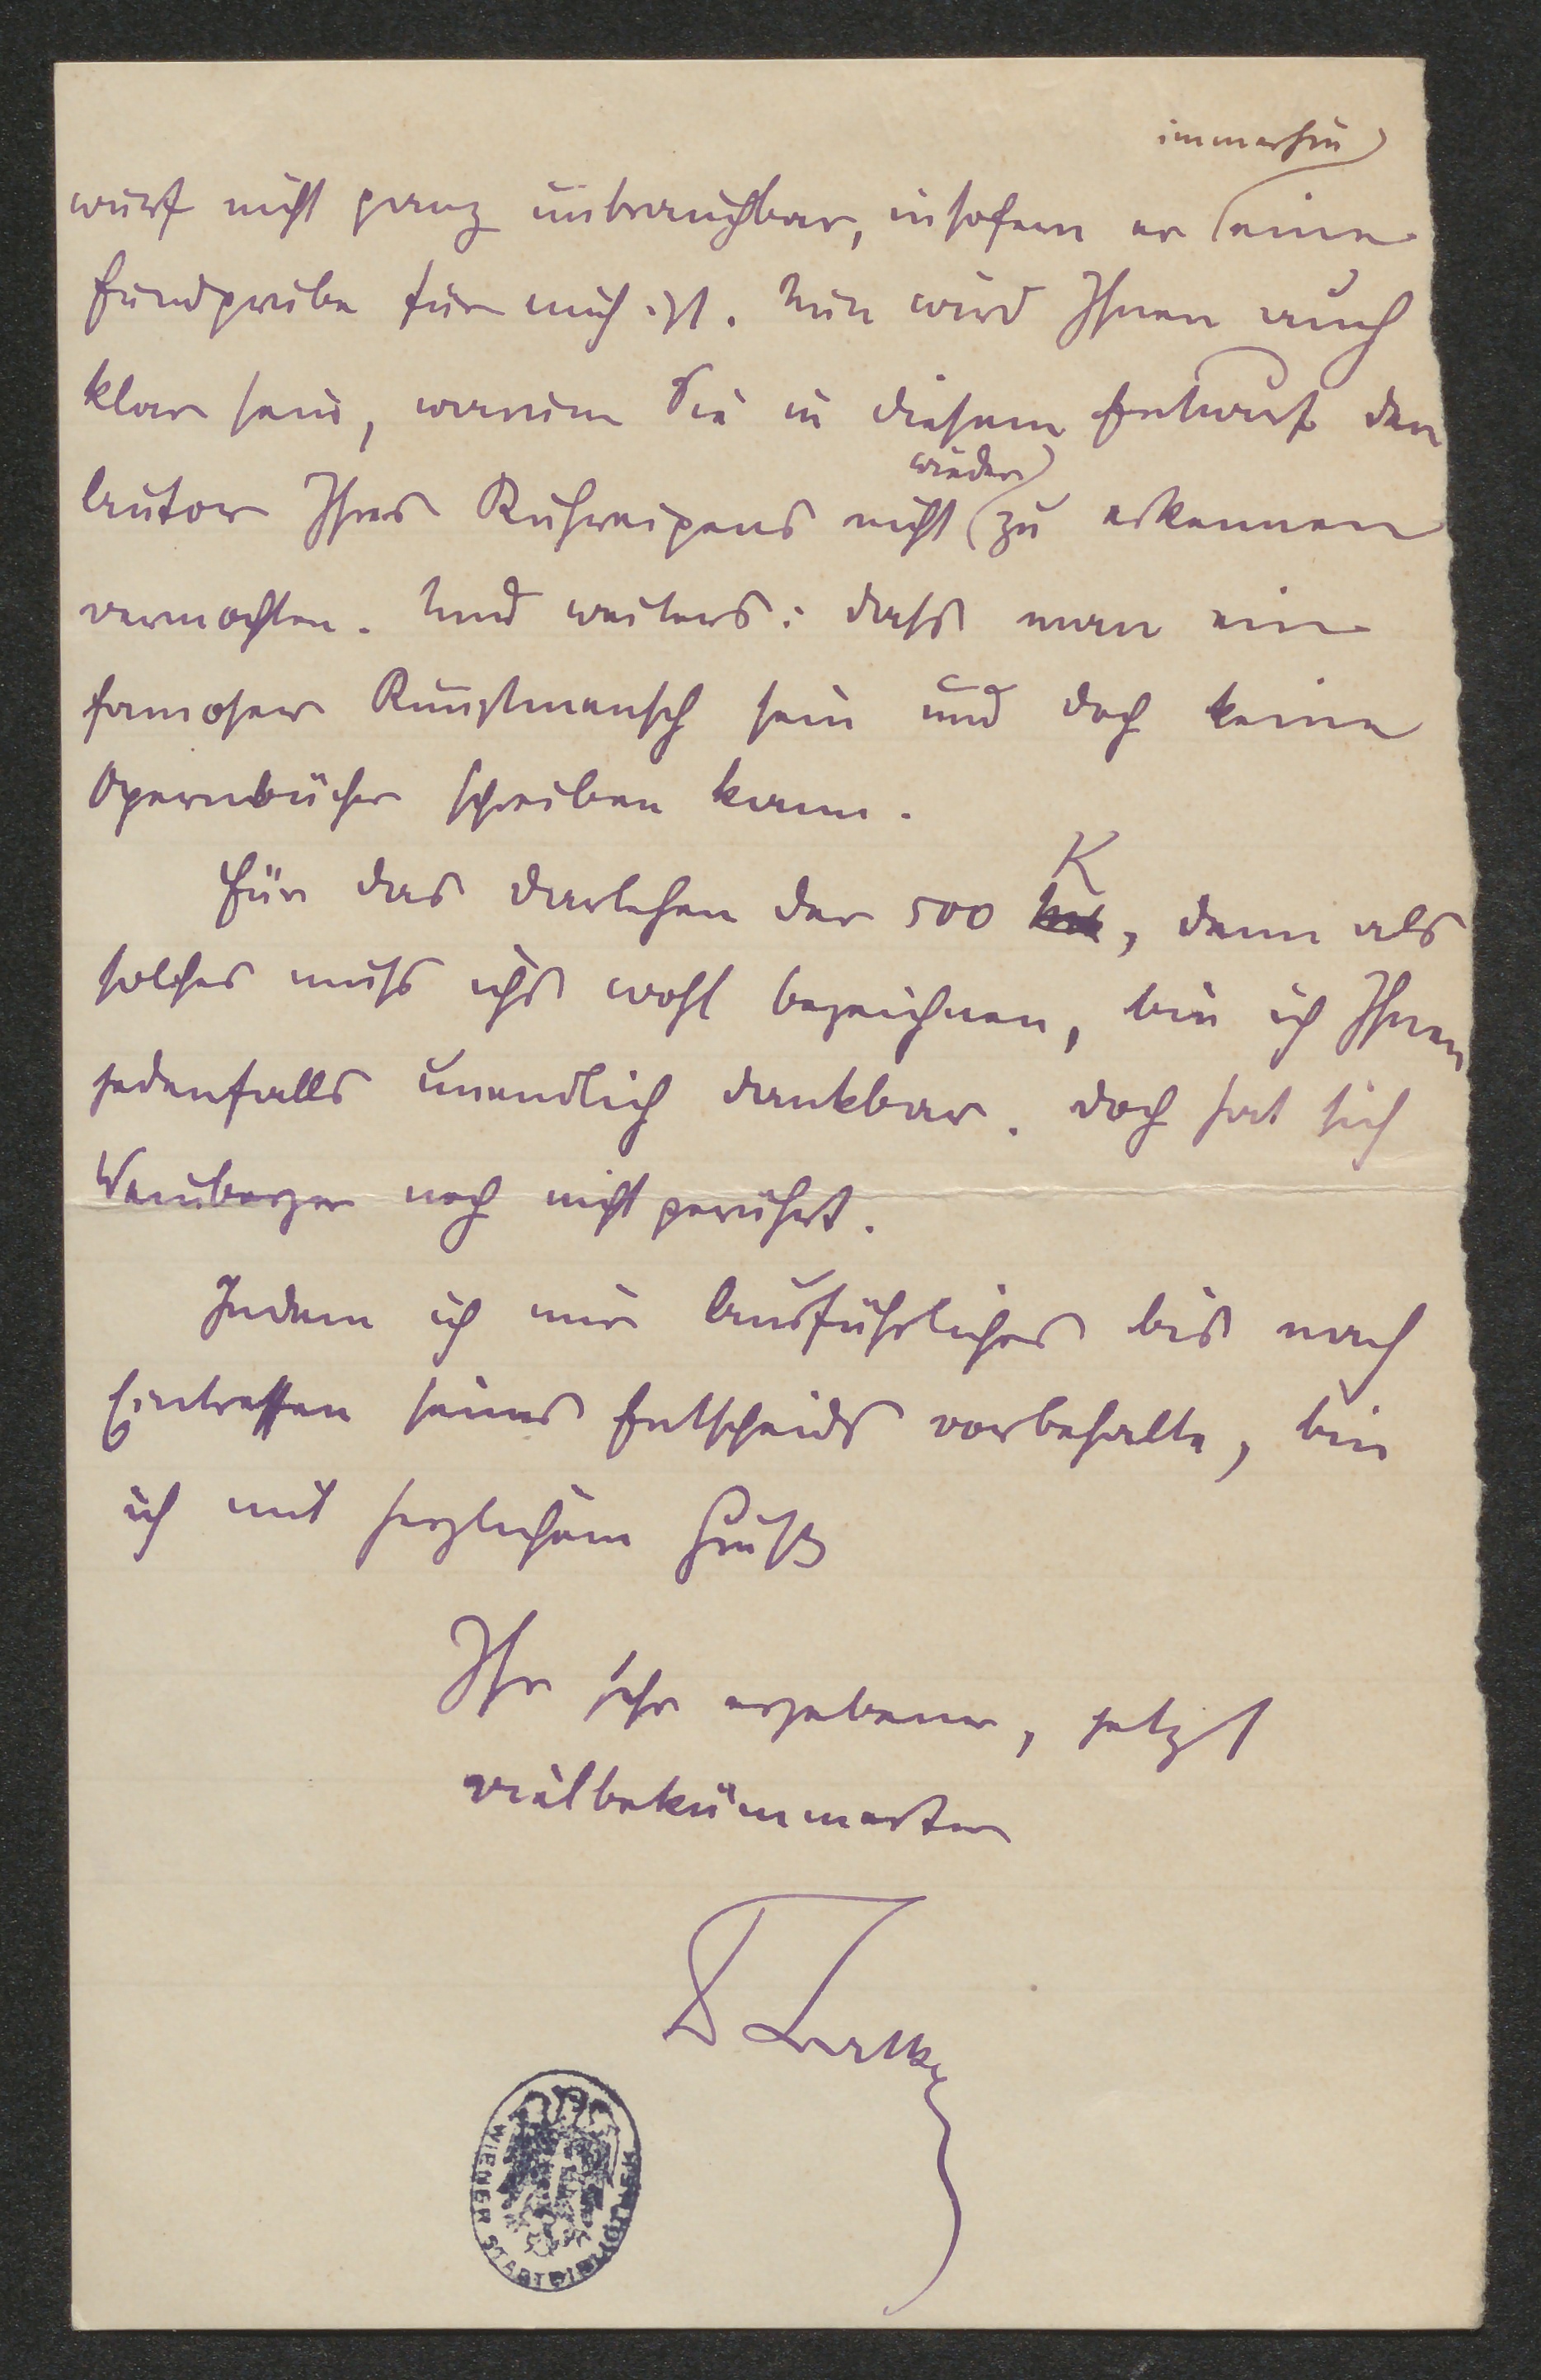 immerhin
wurf nicht ganz unbrauchbar, insofern er eine
Fundgrube für mich ist. Nun wird Ihnen auch
klar sein, warum Sie in diesem Entwurf den
wieder
Autor Ihres Kuhreigens nicht zu erkennen
vermochten. Und weiters: dass man ein
famoser Kunstmensch sein und doch keine
Opernbücher schreiben kann.
K
Für das Darlehen der 500, denn als
solches muss ichs wohl bezeichnen, bin ich Ihnen
jedenfalls unendlich dankbar. Doch hat sich
Weinberger noch nicht gerührt.
Indem ich mir Ausführliches bis nach
Eintreffen seines Entscheids vorbehalte, bin
ich mit herzlichem Gruß
Ihr sehr ergebener, jetzt
vielbekümmerter
WIENER STADTBIBLIOTHEK